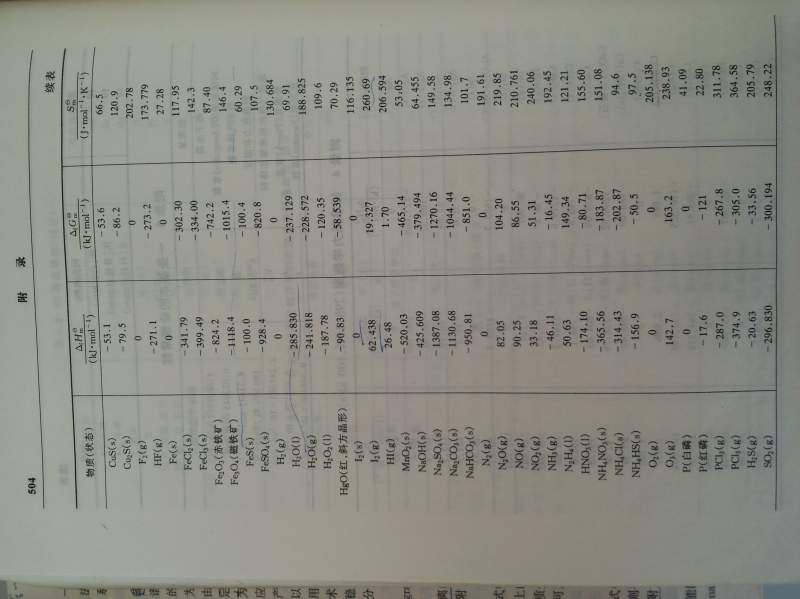 504
附 录
续表
物质(状态) ΔfHm⊖/(kJ·mol⁻¹) ΔfGm⊖/(kJ·mol⁻¹) Sm⊖/(J·mol⁻¹·K⁻¹)
CuS(s) −53.1 −53.6 66.5
Cu₂S(s) −79.5 −86.2 120.9
F₂(g) 0 0 202.78
HF(g) −271.1 −273.2 173.779
Fe(s) 0 0 27.28
FeCl₂(s) −341.79 −302.30 117.95
FeCl₃(s) −399.49 −334.00 142.3
Fe₂O₃(赤铁矿) −824.2 −742.2 87.40
Fe₃O₄(磁铁矿) −1118.4 −1015.4 146.4
FeS(s) −100.0 −100.4 60.29
FeSO₄(s) −928.4 −820.8 107.5
H₂(g) 0 0 130.684
H₂O(l) −285.830 −237.129 69.91
H₂O(g) −241.818 −228.572 188.825
H₂O₂(l) −187.78 −120.35 109.6
HgO(红,斜方晶形) −90.83 −58.539 70.29
I₂(s) 0 0 116.135
I₂(g) 62.438 19.327 260.69
HI(g) 26.48 1.70 206.594
MnO₂(s) −520.03 −465.14 53.05
NaOH(s) −425.609 −379.494 64.455
Na₂SO₄(s) −1387.08 −1270.16 149.58
Na₂CO₃(s) −1130.68 −1044.44 134.98
NaHCO₃(s) −950.81 −851.0 101.7
N₂(g) 0 0 191.61
N₂O(g) 82.05 104.20 219.85
NO(g) 90.25 86.55 210.761
NO₂(g) 33.18 51.31 240.06
NH₃(g) −46.11 −16.45 192.45
N₂H₄(l) 50.63 149.34 121.21
HNO₃(l) −174.10 −80.71 155.60
NH₄NO₃(s) −365.56 −183.87 151.08
NH₄Cl(s) −314.43 −202.87 94.6
NH₄HS(s) −156.9 −50.5 97.5
O₂(g) 0 0 205.138
O₃(g) 142.7 163.2 238.93
P(白磷) 0 0 41.09
P(红磷) −17.6 −121 22.80
PCl₃(g) −287.0 −267.8 311.78
PCl₅(g) −374.9 −305.0 364.58
H₂S(g) −20.63 −33.56 205.79
SO₂(g) −296.830 −300.194 248.22